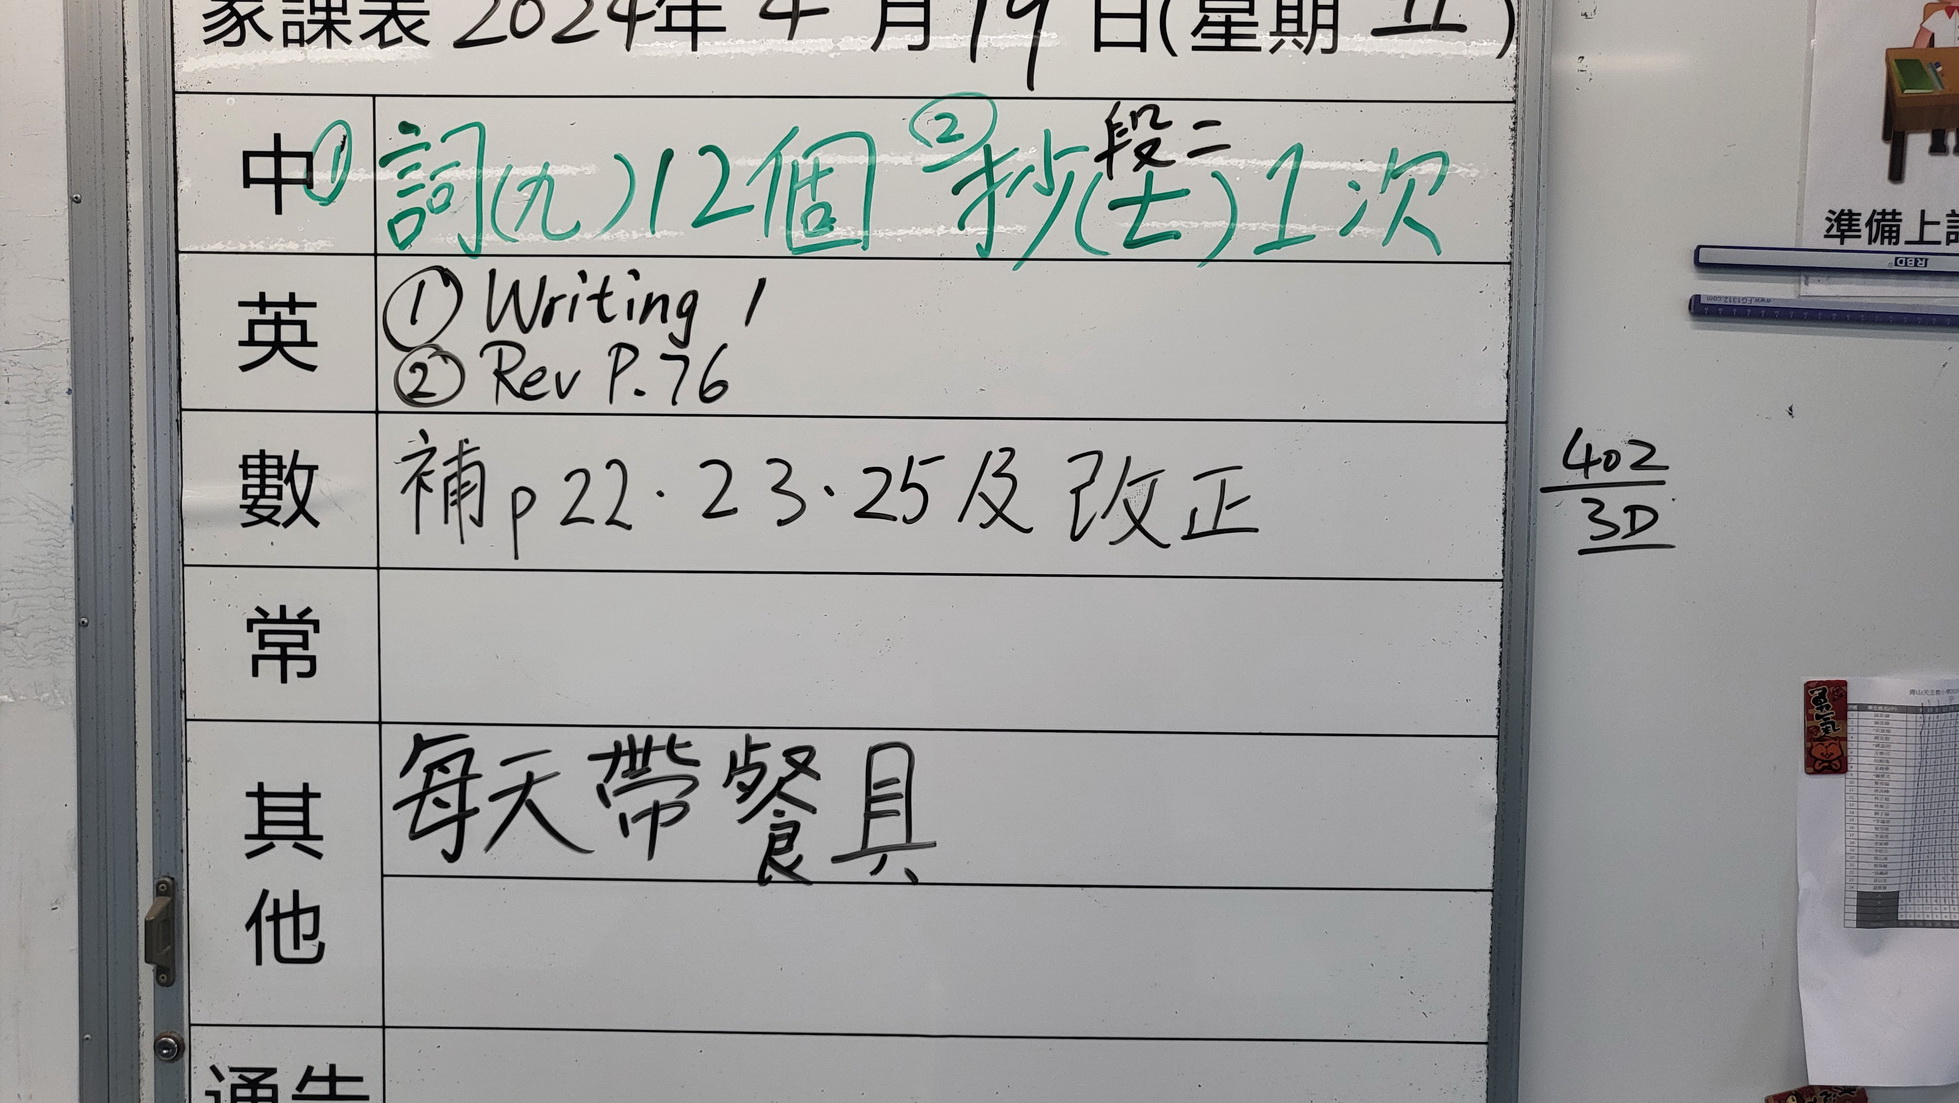 家課表 2024年 4 月 19 日(星期 五 )
中 ① 詞(九)12個 ② 抄(士)1次
段二
英 ① Writing 1
② Rev P.76
數 補p22.23.25及改正
常
其他 每天帶餐具
通告
402
3D
準備上
RBD